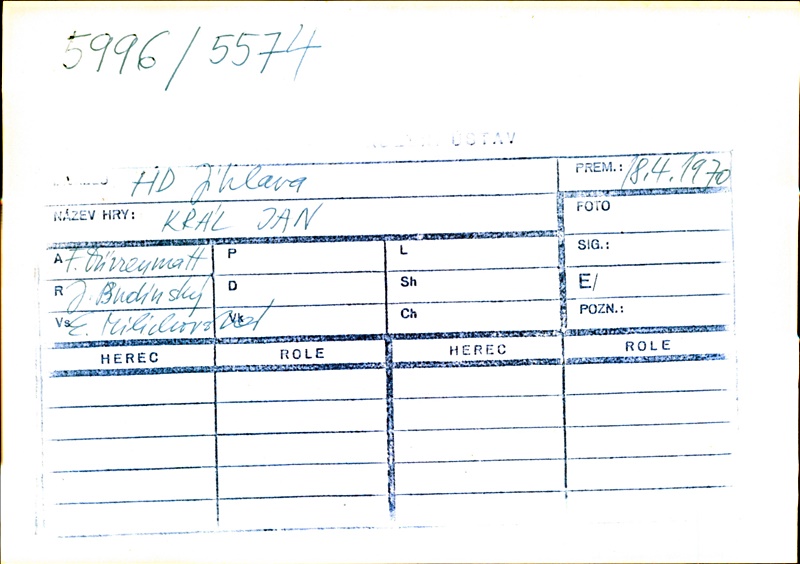 5996/5574
ÚSTAV
HD Jihlava PREM.: 18.4.1970
NÁZEV HRY: KRÁL JAN FOTO
A F. Dürrenmatt P L SIG.:
R J. Budínský D Sh E/
Vs E. Vk Ch POZN.:
HEREC ROLE HEREC ROLE